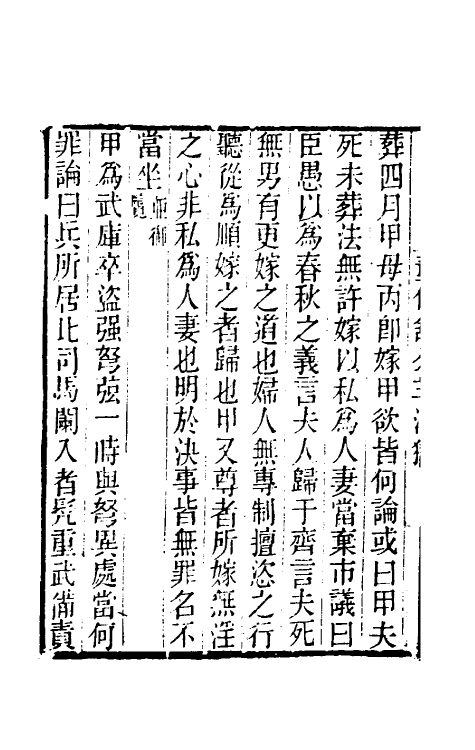 葬四月甲母丙即嫁甲欲皆何論或曰甲夫
死未葬法無許嫁以私為人妻當棄市議曰
臣愚以為春秋之義言夫人歸于齊言夫死
無男有更嫁之道也婦人無專制擅恣之行
聽從為順嫁之者歸也甲又尊者所嫁無淫
之心非私為人妻也明於決事皆無罪名不
當坐御覽
甲為武庫卒盜强弩弦一時與弩異處當何
罪論曰兵所居比司馬闌入者髡重武備責